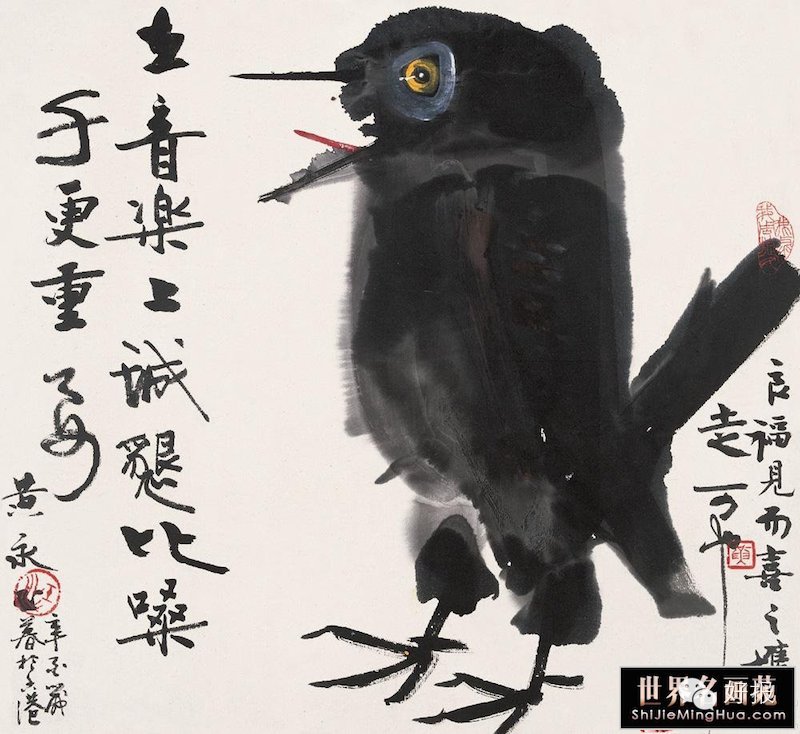 良福見而喜之
走
在音樂上誠懇比嗓
子更重要
黄永玉
辛未歲
暮於香港
世界名画
ShiJieMingHua.com